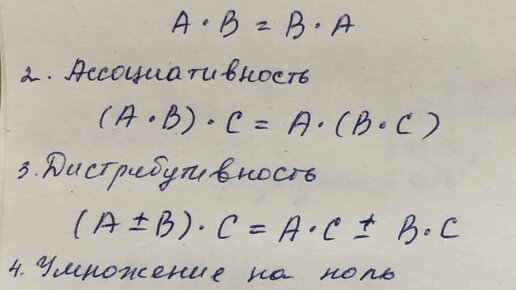 A · B = B · A
2. Ассоциативность
(A · B) · C = A · (B · C)
3. Дистрибутивность
(A ± B) · C = A · C ± B · C
4. Умножение на ноль